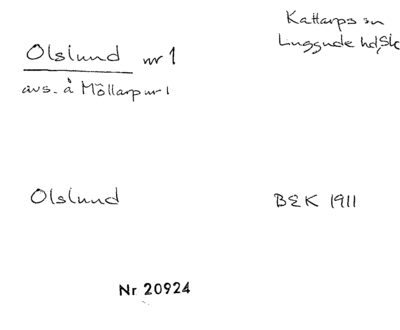 Kattarps sn
Luggude hd, Sk
Olslund nr 1
avs. å Möllarp nr 1
Olslund
BEK 1911
Nr 20924